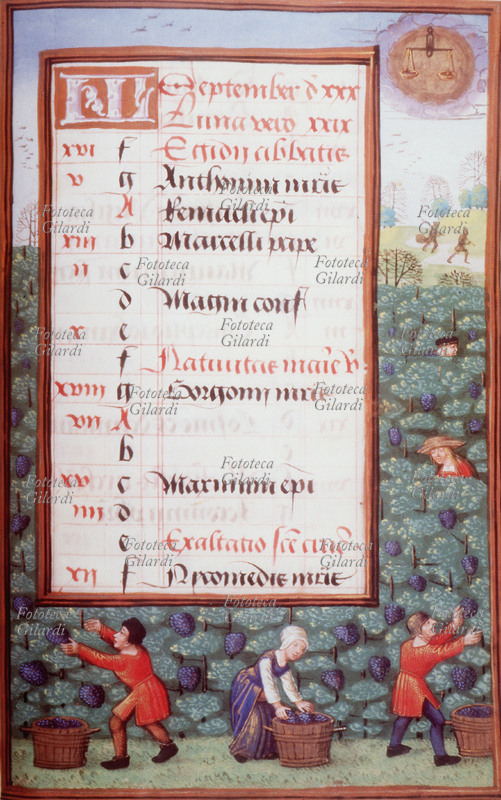 KL September d xxx
Luna vero xxix
xvi f Egidij abbatis
v g Anthonini
A Remacli epi
xiii b Marcelli pape
ii c
d Magni conf
x e
f Nativitas marie
xviii g Gorgonij
vii A
b
xv c Maximini epi
iiii d
e Exaltatio sce
xii f Nicomedis
Fototeca
Gilardi